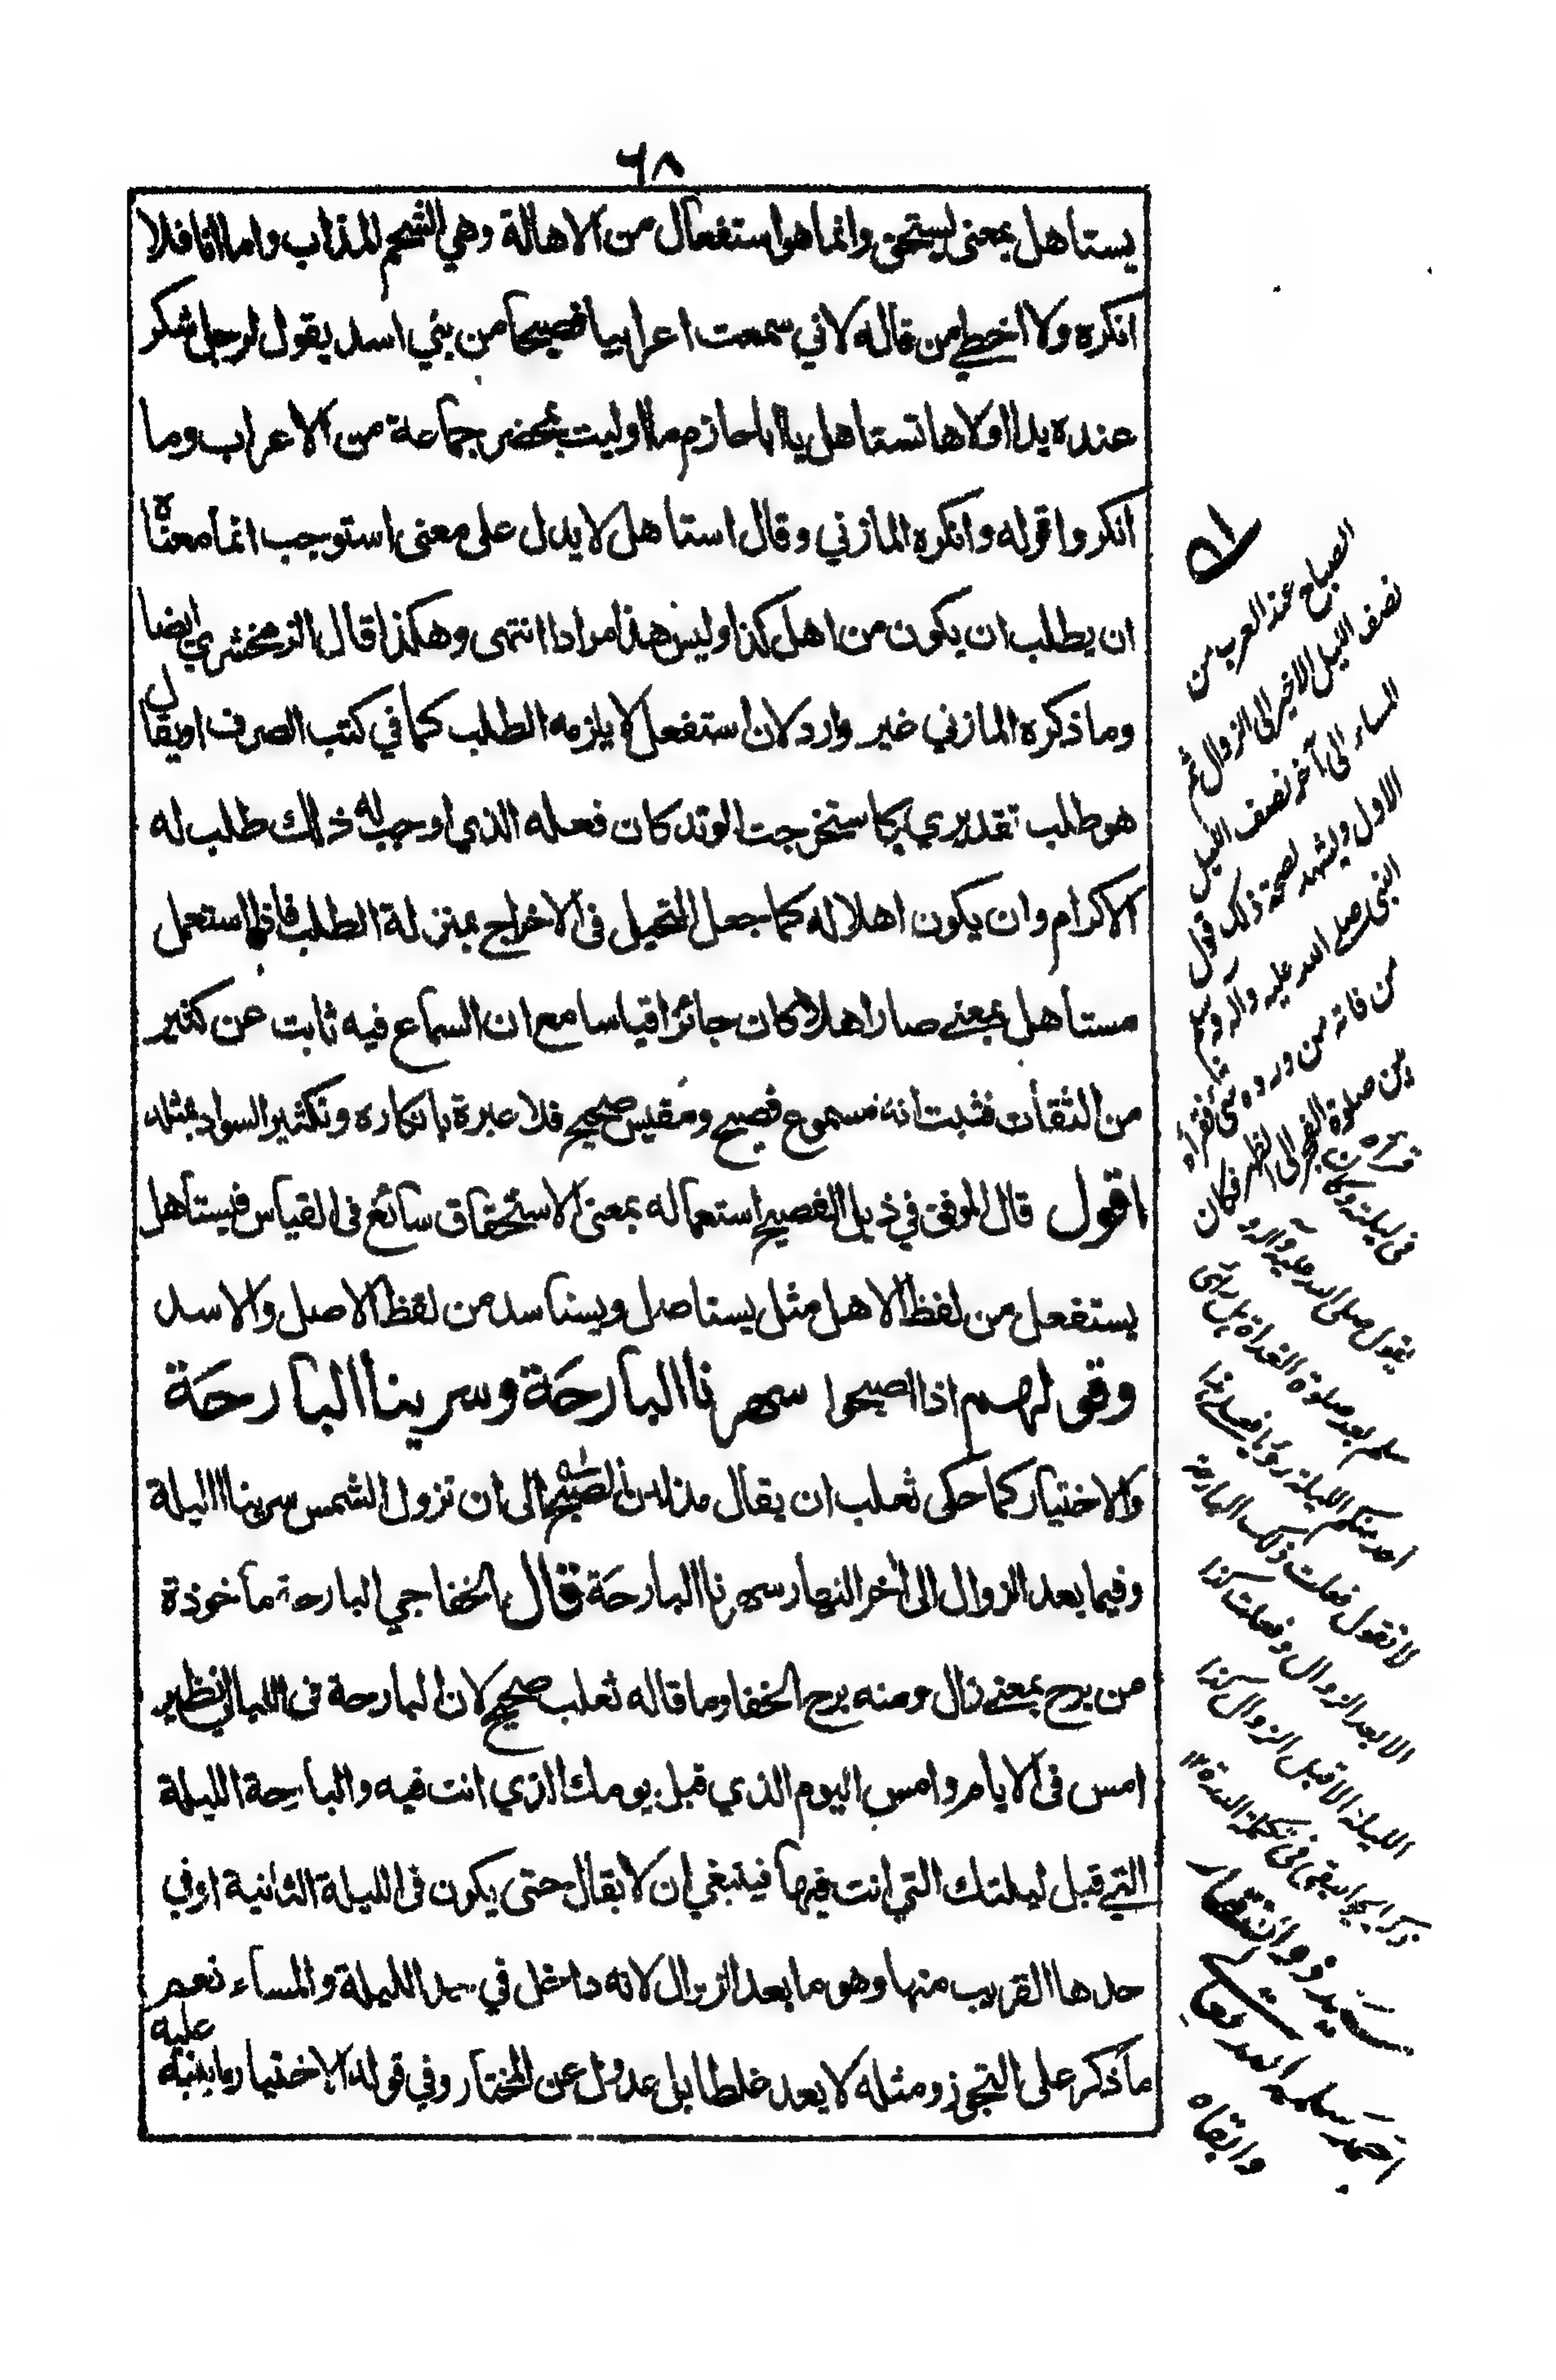 ٦٨
يستاهل بمعنى يستحق وانما هو استفعال من الاهالة وهي الشحم المذاب واما انا فلا
انكره ولا اخطي من قاله لاني سمعت اعرابيا فصيحا من بني اسد يقول لرجل شكر
عنده يدا اولاها تستاهل يا ابا حازم ما اوليت بمحضر جماعة من الاعراب وما
انكروا قوله وانكره المازني وقال استاهل لا يدل على معنى استوجب انما معناه
ان يطلب ان يكون من اهل كذا وليس هذا مرادا انتهى وهكذا قال الزمخشري ايضا
وما ذكره المازني غير وارد لان استفعل لا يلزمه الطلب كما في كتب الصرف او يقال
هو طلب تقديري كاستخرجت الوتد كان فعله الذي اوجب له ذلك طلب له
الاكرام وان يكون اهلا له كما جعل التحيل فى الاخراج بمنزلة الطلب فاذا استعمل
مستاهل بمعنے صار اهلا كان جائزا قياسا مع ان السماع فيه ثابت عن كثير
من الثقات فثبت انه مسموع فصيح ومقيس صحيح فلا عبرة بانكاره وتكثير السواد بمثله
اقول قال الموفق في ذيل الفصيح استعماله بمعنى الاستحقاق سائغ فى القياس فيستاهل
يستفعل من لفظ الاهل مثل يستاصل ويستاسد من لفظ الاصل والاسد
وقولهم اذا اصبحوا سهرنا البارحَة وسرينا البارحَة
والاختيار كما حكى ثعلب ان يقال مذ لدن الصبح الى ان تزول الشمس سرينا الليلة
وفيما بعد الزوال الى آخر النهار سهرنا البارحَة قال الخفاجي البارحة مأخوذة
من برح بمعنے زال ومنه برح الخفا وما قاله ثعلب صحيح لان البارحة فى الليالي نظير
امس فى الايام وامس اليوم الذي قبل يومك الذي انت فيه والبارحة الليلة
التي قبل ليلتك التي انت فيها فينبغي ان لا يقال حتى يكون فى الليلة الثانية او في
حدها القريب منها وهو ما بعد الزوال لانه داخل في حد الليلة والمساء نعم
ما ذكر على التجوز ومثله لا يعد غلطا بل عدول عن المختار وفي قوله الاختيار ما ينبه عليه
الصباح عند العرب من
نصف الليل الاخير الى الزوال ثم
المساء الى آخر نصف الليل
الاول ويشهد لصحة ذلك قول
النبى صلے الله عليه وآله وسلم
من فاته من ورده شئ فقرأه
بين صلوة الفجر الى الظهر فكان
قرأه
فى ليلته وكان
يقول صلى الله عليه وآله و
سلم بعد صلوة الغداة هل رأى
احد منكم الليلة رؤيا فيصلے اذا
لا تقول فعلت ذلك البارحة
الا بعد الزوال وفعلت كذا
الليلة الا قبل الزوال كذا
ذكر الجواليقى فى تكملة الدرة ١٢
سيد ذو الفقار
احمد سلمه الله تعالى
وابقاه